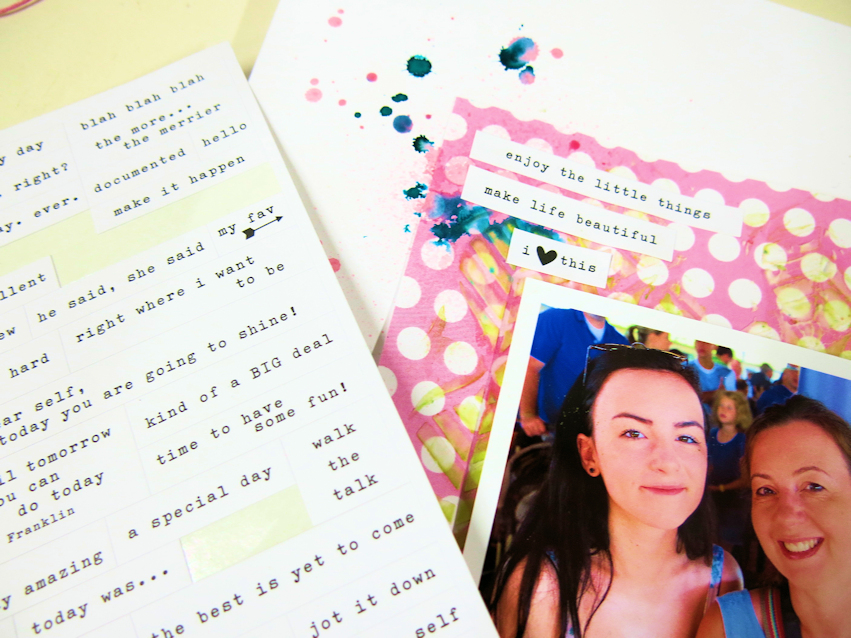 blah blah blah
the more...
the merrier
day
right?
documented
hello
ever.
make it happen
my fav
he said, she said
right where i want
to be
hard
self,
today you are going to shine!
kind of a BIG deal
time to have
some fun!
tomorrow
you can
do today
Franklin
walk
the
talk
a special day
amazing
today was...
the best is yet to come
jot it down
self
enjoy the little things
make life beautiful
i this